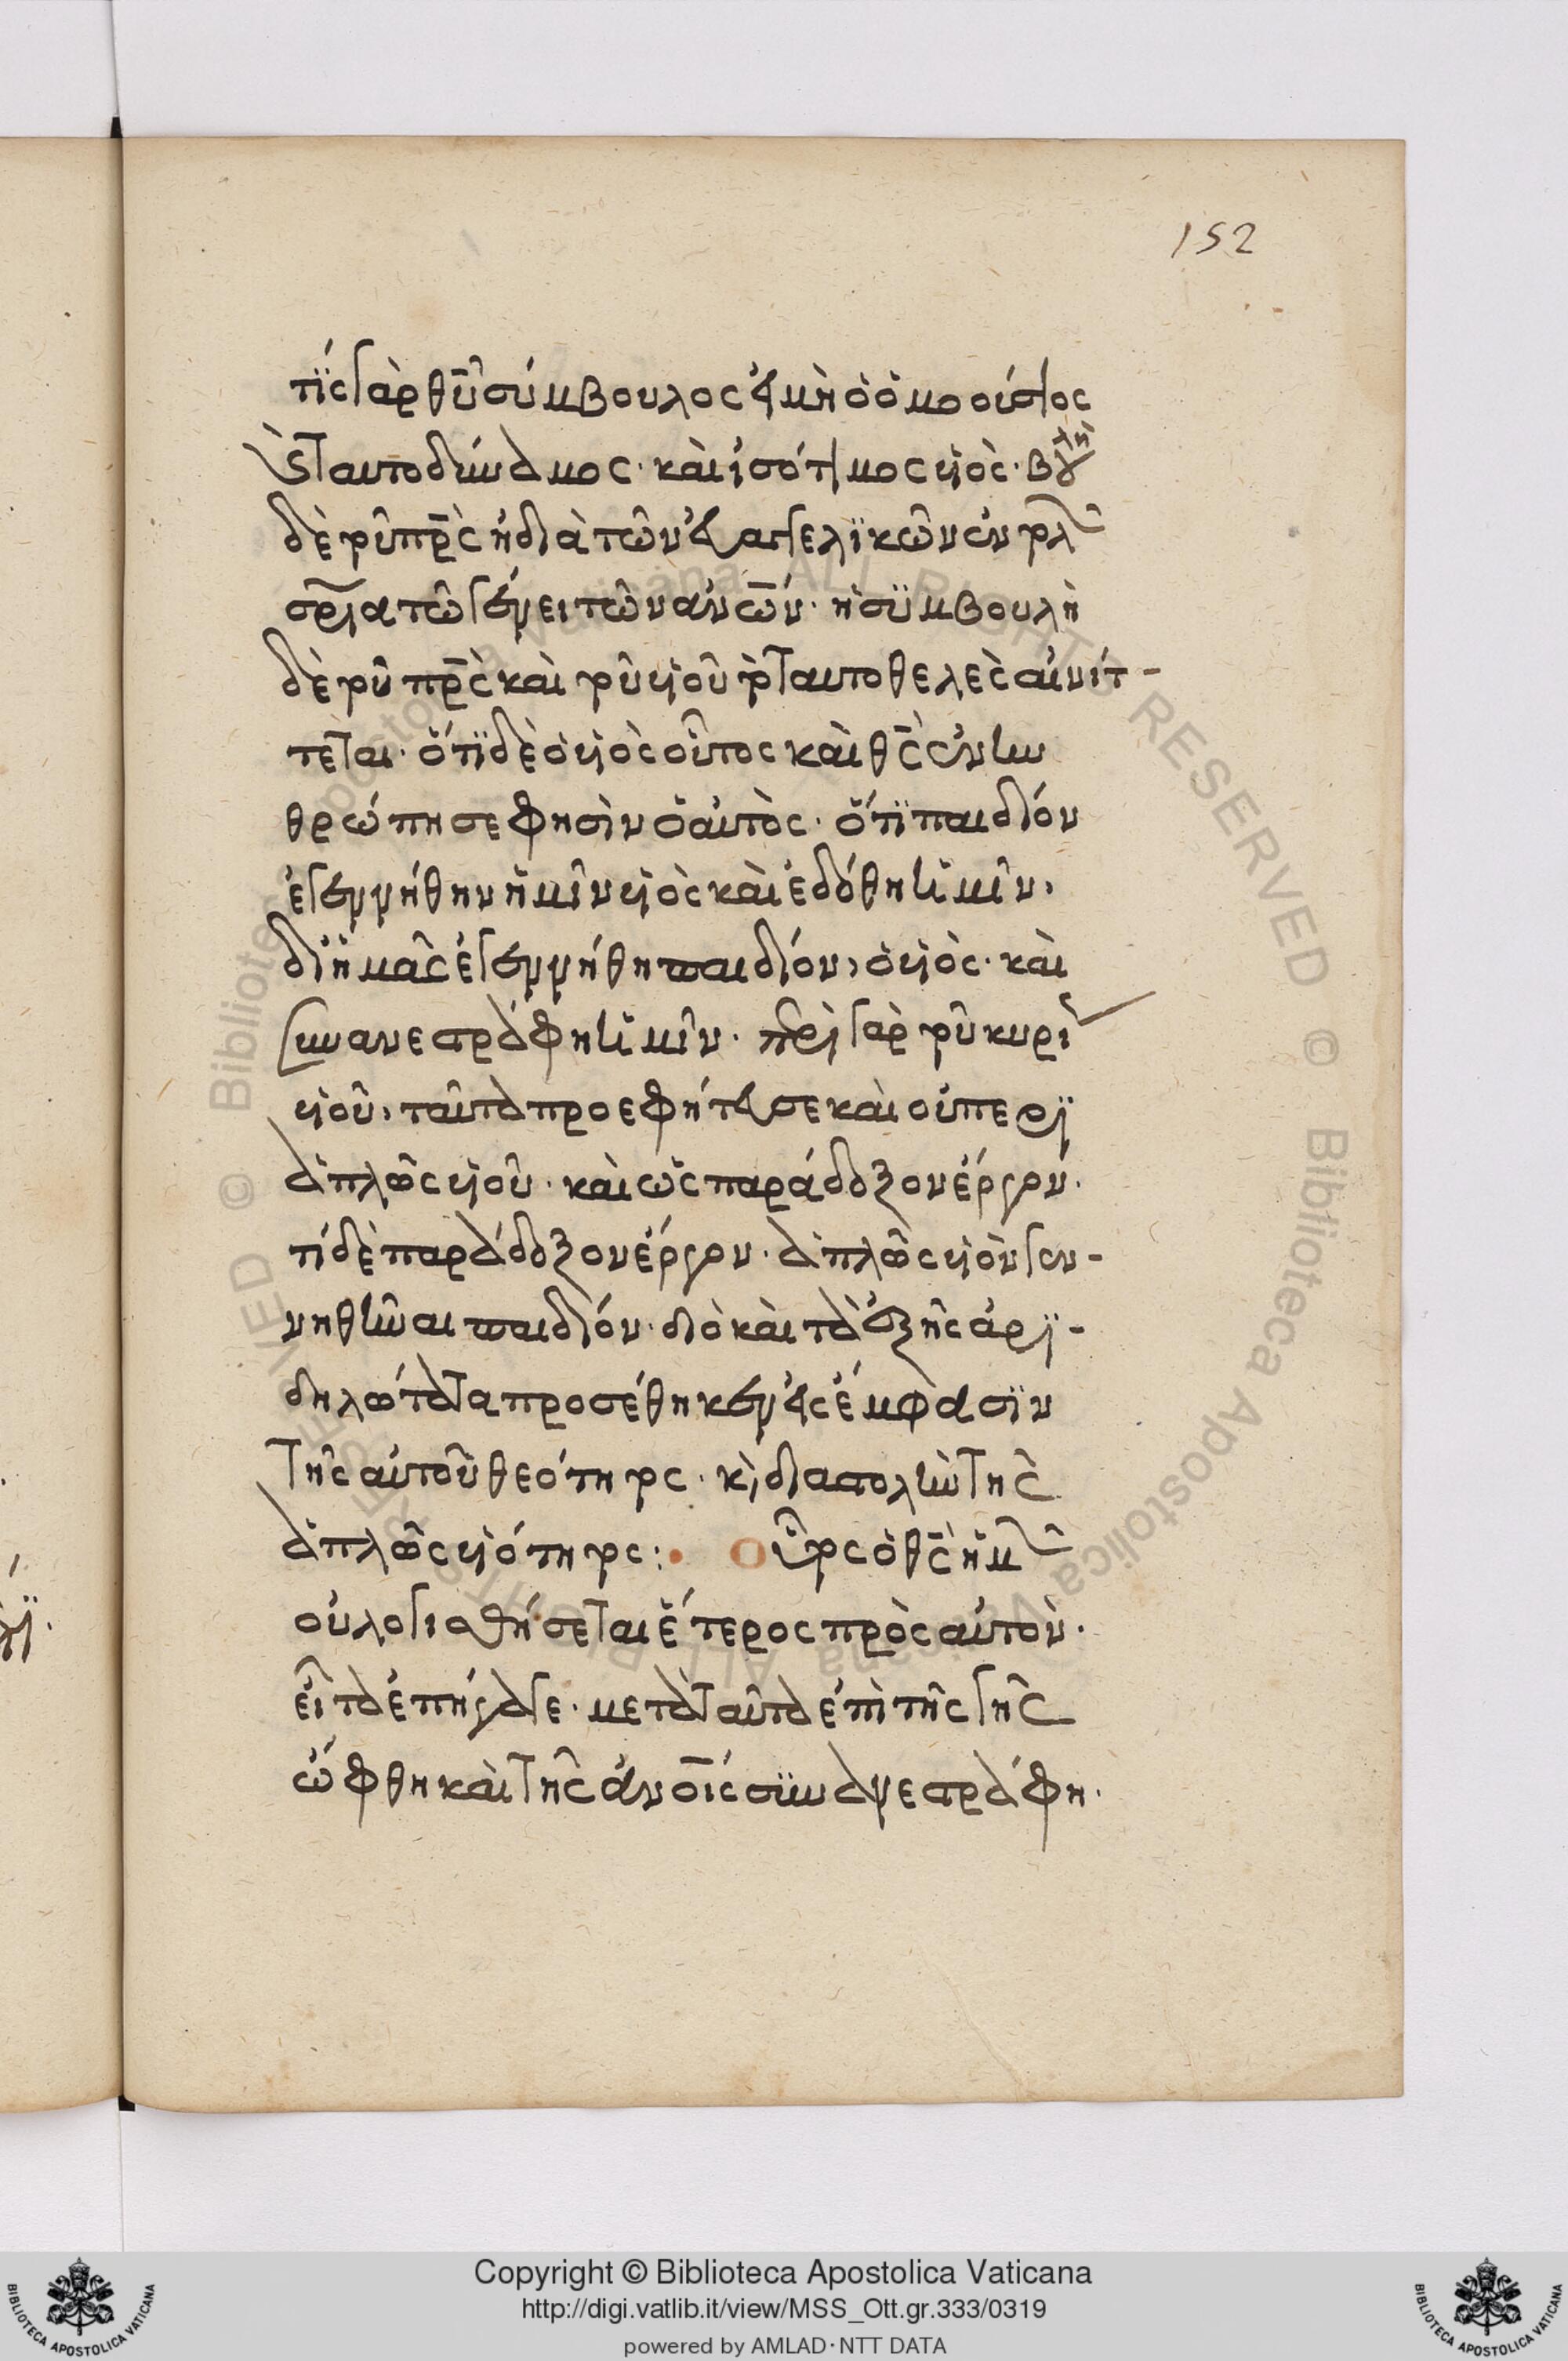 152
τίς γὰρ θυ σύμβουλος εἰ μὴ ὁ ὁμοούσιος
ταυτοδύναμος· καὶ ἰσότιμος υἱὸς· βουλὴ
δὲ τοῦ πρς ἡ διὰ τῶν εὐαγγελικῶν ἐντολ
σρια τῶ γένει τῶν ανων· ἡ συμβουλὴ
δὲ τοῦ πρς καὶ τοῦ υἱοῦ τὸ ταυτοθελὲς αἰνίτ-
τεται· ὅτι δὲ ὁ υἱὸς οὗτος καὶ θς ἐνην
θρώπησε φησὶν ὁ αὐτὸς· ὅτι παιδίον
ἐγεννήθην ἡμῖν υἱὸς καὶ ἐδόθη ἡμῖν,
δι ἡμᾶς ἐγεννήθη παιδίον, ὁ υἱὸς· καὶ
συνανεστράφη ἡμῖν· περὶ γὰρ τοῦ κυρι
υἱοῦ, ταῦτα προεφήτευσε καὶ οὐ περὶ
ἁπλῶς υἱοῦ· καὶ ὡς παράδοξον ἔργον·
τί δὲ παράδοξον ἔργον· ἁπλῶς υἱὸν γεν-
νηθῆναι παιδίον· διὸ καὶ τὰ ἑξῆς ἀρι-
δηλώτατα προσέθηκεν εἰς ἔμφασιν
τῆς αὐτοῦ θεότητος· κ διαστολὴν τῆς
ἁπλῶς υἱότητος: Οὗτος ὁ θς ἡμ
οὐ λογισθήσεται ἕτερος πρὸς αὐτὸν·
εἶτα ἐπήγαγε· μετὰ ταῦτα ἐπὶ τῆς γῆς
ὤφθη καὶ τῆς ανοις συνανεστράφη·
Copyright © Biblioteca Apostolica Vaticana
http://digi.vatlib.it/view/MSS_Ott.gr.333/0319
powered by AMLAD·NTT DATA